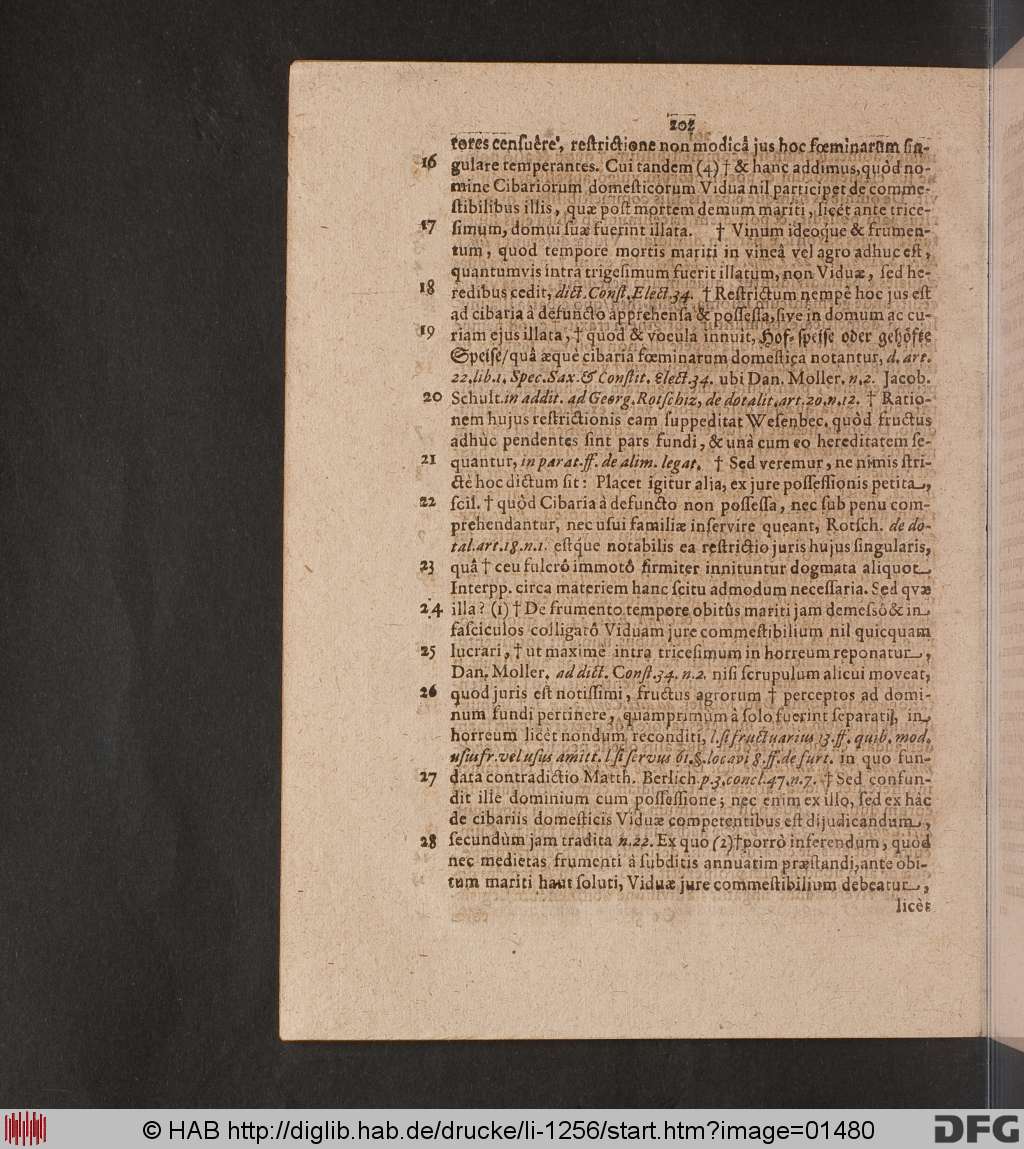 202
tores censuêre, restrictione non modicâ jus hoc fœminarum sin-
16 gulare temperantes. Cui tandem (4) † & hanc addimus, quòd no-
mine Cibariorum domesticorum Vidua nil participet de comme-
stibilibus illis, quæ post mortem demum mariti, licèt ante trice-
17 simum, domui suæ fuerint illata. † Vinum ideoque & frumen-
tum, quod tempore mortis mariti in vineâ vel agro adhuc est,
quantumvis intra trigesimum fuerit illatum, non Viduæ, sed he-
18 redibus cedit, dict. Const. Elect. 34. † Restrictum nempè hoc jus est
ad cibaria à defuncto apprehensa & possessa, sive in domum ac cu-
19 riam ejus illata, † quod & vocula innuit, Hof-speise oder gehöfte
Speise/ quâ æquè cibaria fœminarum domestica notantur, d. art.
22. lib. 1. Spec. Sax. & Constit. Elect. 34. ubi Dan. Moller. n. 2. Jacob.
20 Schult. in addit. ad Georg. Rotschiz, de dotalit. art. 20. n. 12. † Ratio-
nem hujus restrictionis eam suppeditat Wesenbec. quòd fructus
adhùc pendentes sint pars fundi, & unà cum eo hereditatem se-
21 quantur, in parat. ff. de alim. legat. † Sed veremur, ne nimis stri-
ctè hoc dictum sit: Placet igitur alia, ex jure possessionis petita,
22 scil. † quòd Cibaria à defuncto non possessa, nec sub penu com-
prehendantur, nec usui familiæ inservire queant, Rotsch. de do-
tal. art. 18. n. 1. estque notabilis ea restrictio juris hujus singularis,
23 quâ † ceu fulcrô immotô firmiter innituntur dogmata aliquot
Interpp. circa materiem hanc scitu admodum necessaria. Sed qvæ
24 illa? (1) † De frumento tempore obitûs mariti jam demessô & in
fasciculos colligatô Viduam jure commestibilium nil quicquam
25 lucrari, † ut maximè intra tricesimum in horreum reponatur,
Dan. Moller. ad dict. Const. 34. n. 2. nisi scrupulum alicui moveat,
26 quod juris est notissimi, fructus agrorum † perceptos ad domi-
num fundi pertinere, quamprimum à solo fuerint separati, in
horreum licèt nondum reconditi, l. si fructuarius 13. ff. quib. mod.
usufr. vel usus amitt. l. si servus 61. §. locavi 8. ff. de furt. in quo fun-
27 data contradictio Matth. Berlich. p. 3. concl. 47. n. 7. † Sed confun-
dit ille dominium cum possessione; nec enim ex illo, sed ex hâc
de cibariis domesticis Viduæ competentibus est dijudicandum,
28 secundùm jam tradita n. 22. Ex quo (2) † porrò inferendum, quòd
nec medietas frumenti à subditis annuatim præstandi, ante obi-
tum mariti haut soluti, Viduæ jure commestibilium debeatur,
licèt
© HAB http://diglib.hab.de/drucke/li-1256/start.htm?image=01480
DFG